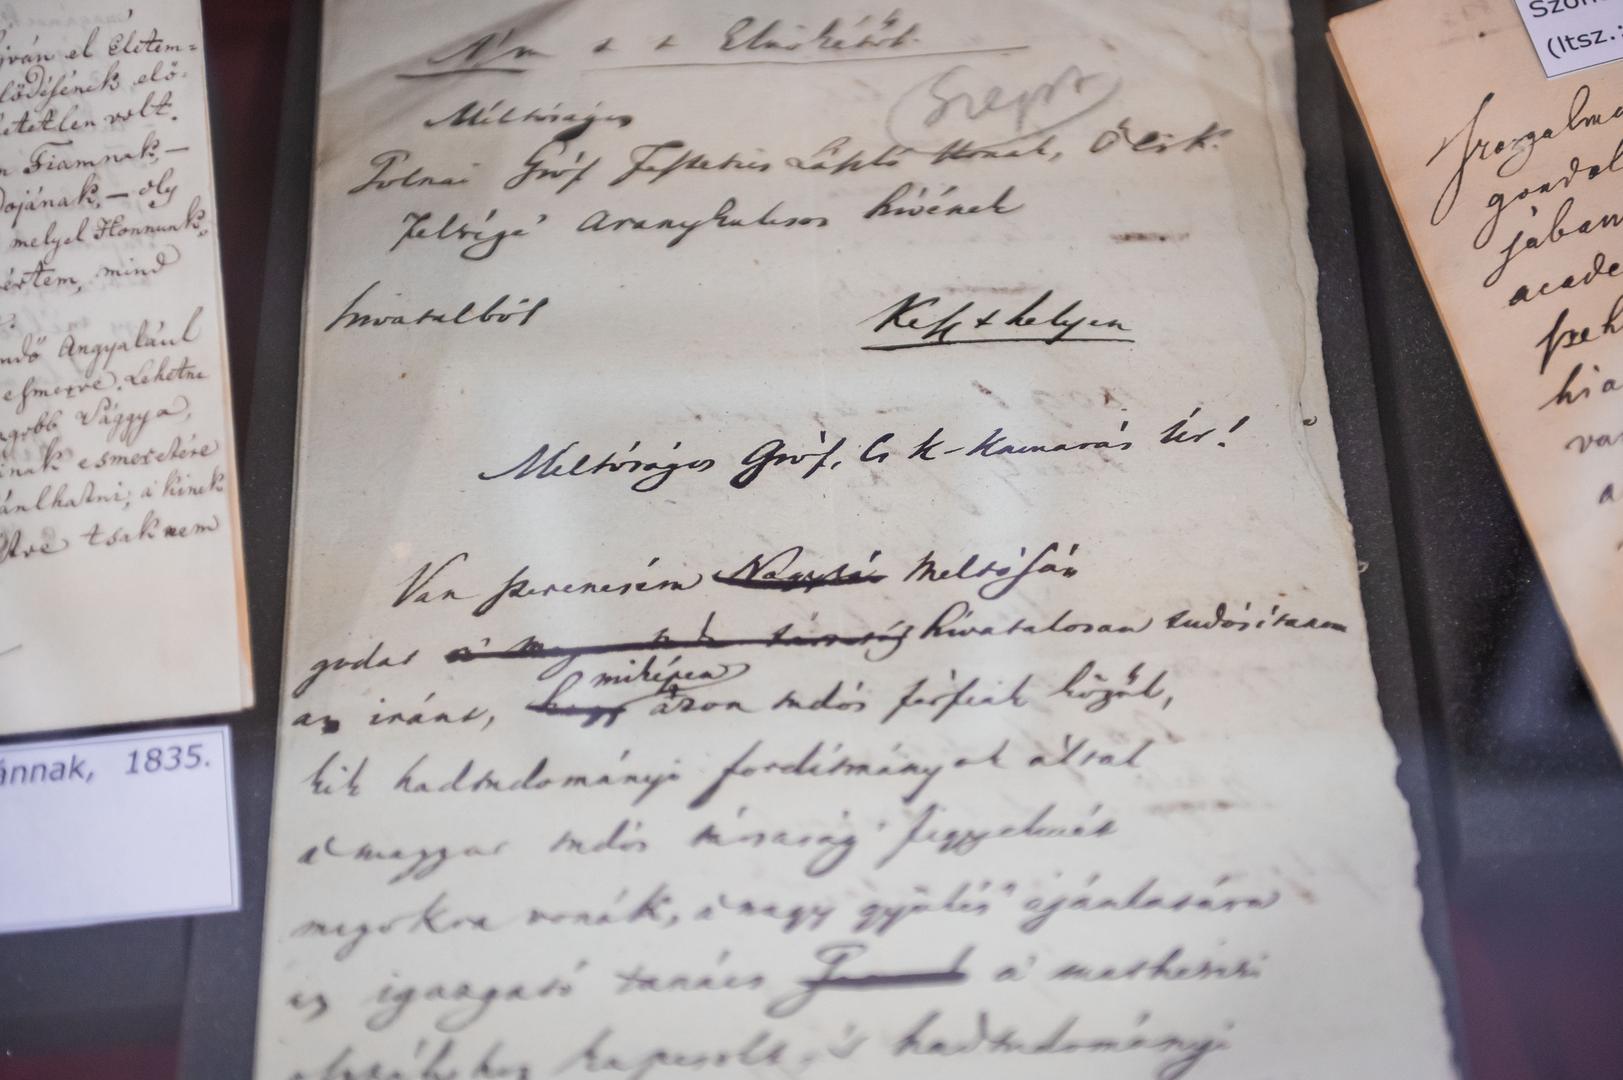 ván el Életem=
lődésének elő-
letetlen volt.
n Fiamnak, —
dojának, — oly
melyel Honnunk,
értem, mind
ndő Angyalául
esmerve. Lehetne
agobb Vággya,
inak esmeretére
ánlhatni, a' kinek
tve tsak nem
ánnak, 1835.
Elnökétől.
Méltóságos
Tolnai Gróf Festetics László Úrnak, Ő Cs. K.
Felsége' Aranykulcsos hívének
hivatalból
Keszthelyen
Méltóságos Gróf, Cs K-Kamarás Úr!
Van szerencsém Nagysá Méltósá
godat a' magy tud társaság hivatalosan tudósítanom
az iránt, hogy
miképen
azon tudós férfiak közől,
kik hadtudományi fordítmányok által
a' magyar tudós társaság' figyelmét
magokra vonák, a' nagy gyűlés' ajánlására
az igazgató tanács a' mathesisi
osztályhoz kapcsolt 's hadtudományi
(ltsz.:
gondol
jában
acade
szeh
hia
va
a